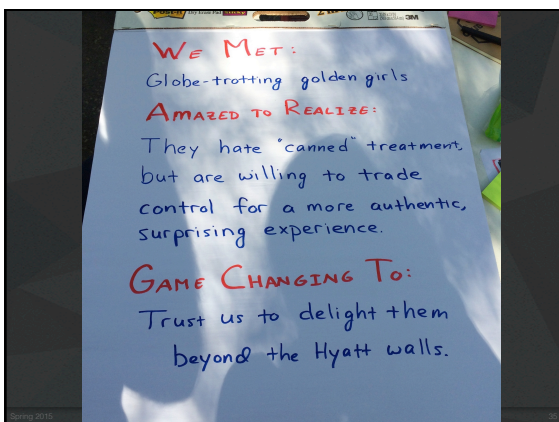 3M
WE MET:
Globe-trotting golden girls
AMAZED TO REALIZE:
They hate "canned" treatment,
but are willing to trade
control for a more authentic,
surprising experience.
GAME CHANGING TO:
Trust us to delight them
beyond the Hyatt walls.
Spring 2015
35